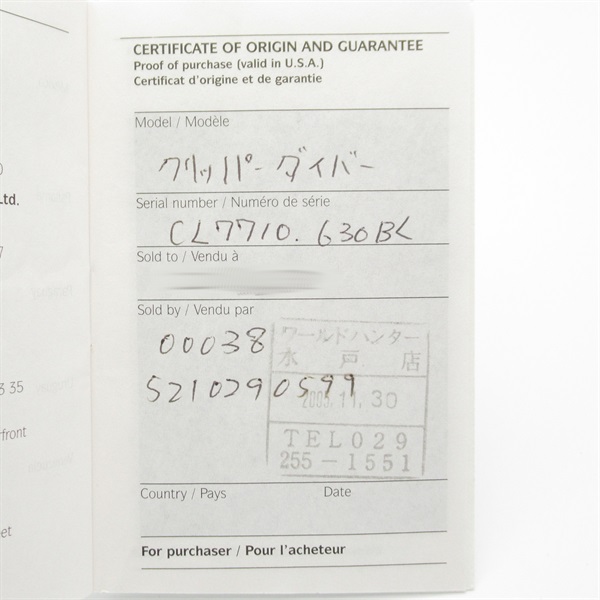 CERTIFICATE OF ORIGIN AND GUARANTEE
Proof of purchase (valid in U.S.A.)
Certificat d'origine et de garantie
Model / Modèle
クリッパーダイバー
Serial number / Numéro de série
CL7710. 630BL
Sold to / Vendu à
Sold by / Vendu par
00038
5210290599
ワールドハンター
水戸店
2005.11.30
TEL029
255-1551
Country / Pays Date
For purchaser / Pour l'acheteur
td.
7
3 35
front
et